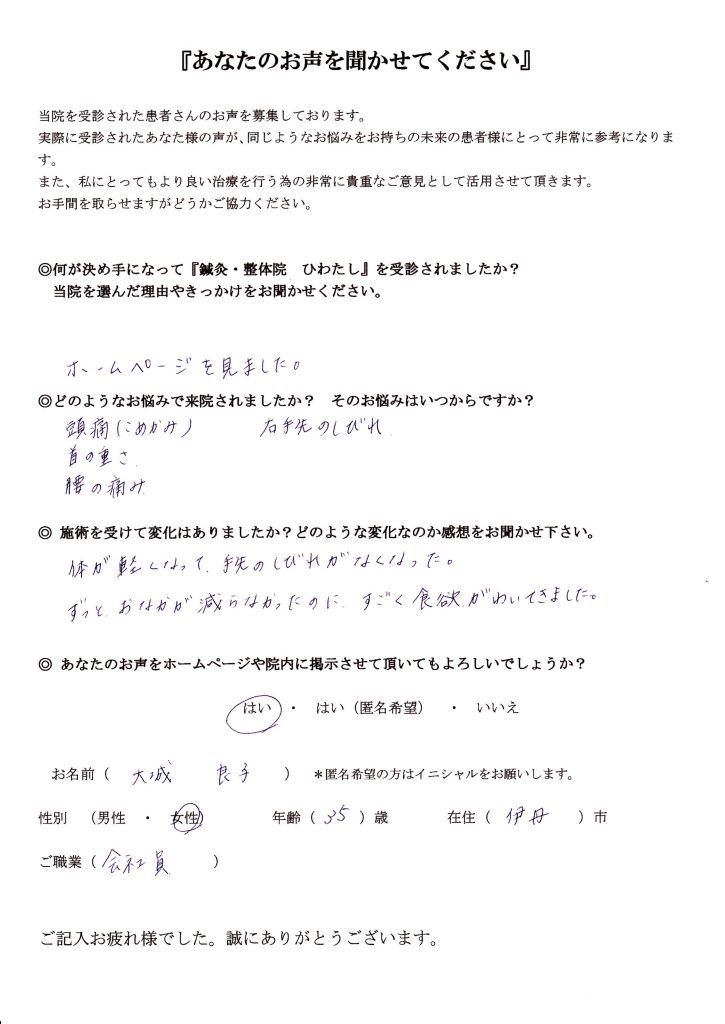 『あなたのお声を聞かせてください』
当院を受診された患者さんのお声を募集しております。
実際に受診されたあなた様の声が、同じようなお悩みをお持ちの未来の患者様にとって非常に参考になりま
す。
また、私にとってもより良い治療を行う為の非常に貴重なご意見として活用させて頂きます。
お手間を取らせますがどうかご協力ください。
◎何が決め手になって『鍼灸・整体院　ひわたし』を受診されましたか？
当院を選んだ理由やきっかけをお聞かせください。
ホームページを見ました。
◎どのようなお悩みで来院されましたか？　そのお悩みはいつからですか？
頭痛（こめかみ）　右手先のしびれ
首の重さ
腰の痛み
◎ 施術を受けて変化はありましたか？どのような変化なのか感想をお聞かせ下さい。
体が軽くなって、手先のしびれがなくなった。
ずっと、おなかが減らなかったのに、すごく食欲がわいてきました。
◎ あなたのお声をホームページや院内に掲示させて頂いてもよろしいでしょうか？
はい　・　はい（匿名希望）　・　いいえ
お名前（　大城　良子　）　＊匿名希望の方はイニシャルをお願いします。
性別　（男性　・　女性）　年齢（ 35 ）歳　在住（ 伊丹 ）市
ご職業（ 会社員 ）
ご記入お疲れ様でした。誠にありがとうございます。